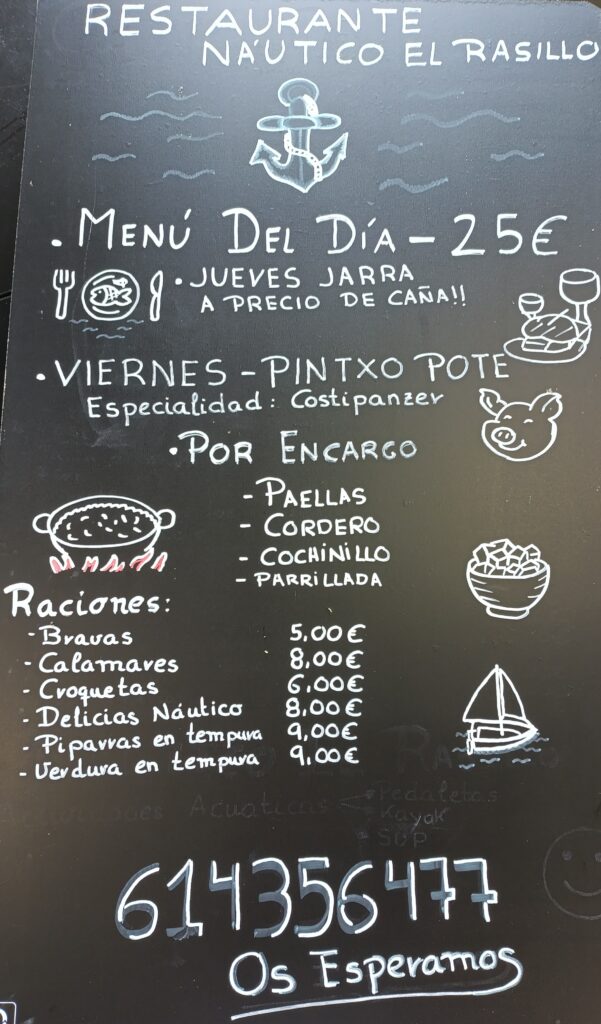 RESTAURANTE
NÁUTICO EL RASILLO
. MENÚ DEL DÍA - 25€
. JUEVES JARRA
A PRECIO DE CAÑA!!
. VIERNES - PINTXO POTE
Especialidad: Costipanzer
. POR ENCARGO
- PAELLAS
- CORDERO
- COCHINILLO
- PARRILLADA
Raciones:
- Bravas 5,00€
- Calamares 8,00€
- Croquetas 6,00€
- Delicias Náutico 8,00€
- Piparras en tempura 9,00€
- Verdura en tempura 9,00€
Acuaticas - Pedaletas
- Kayak
- SUP
614356477
Os Esperamos